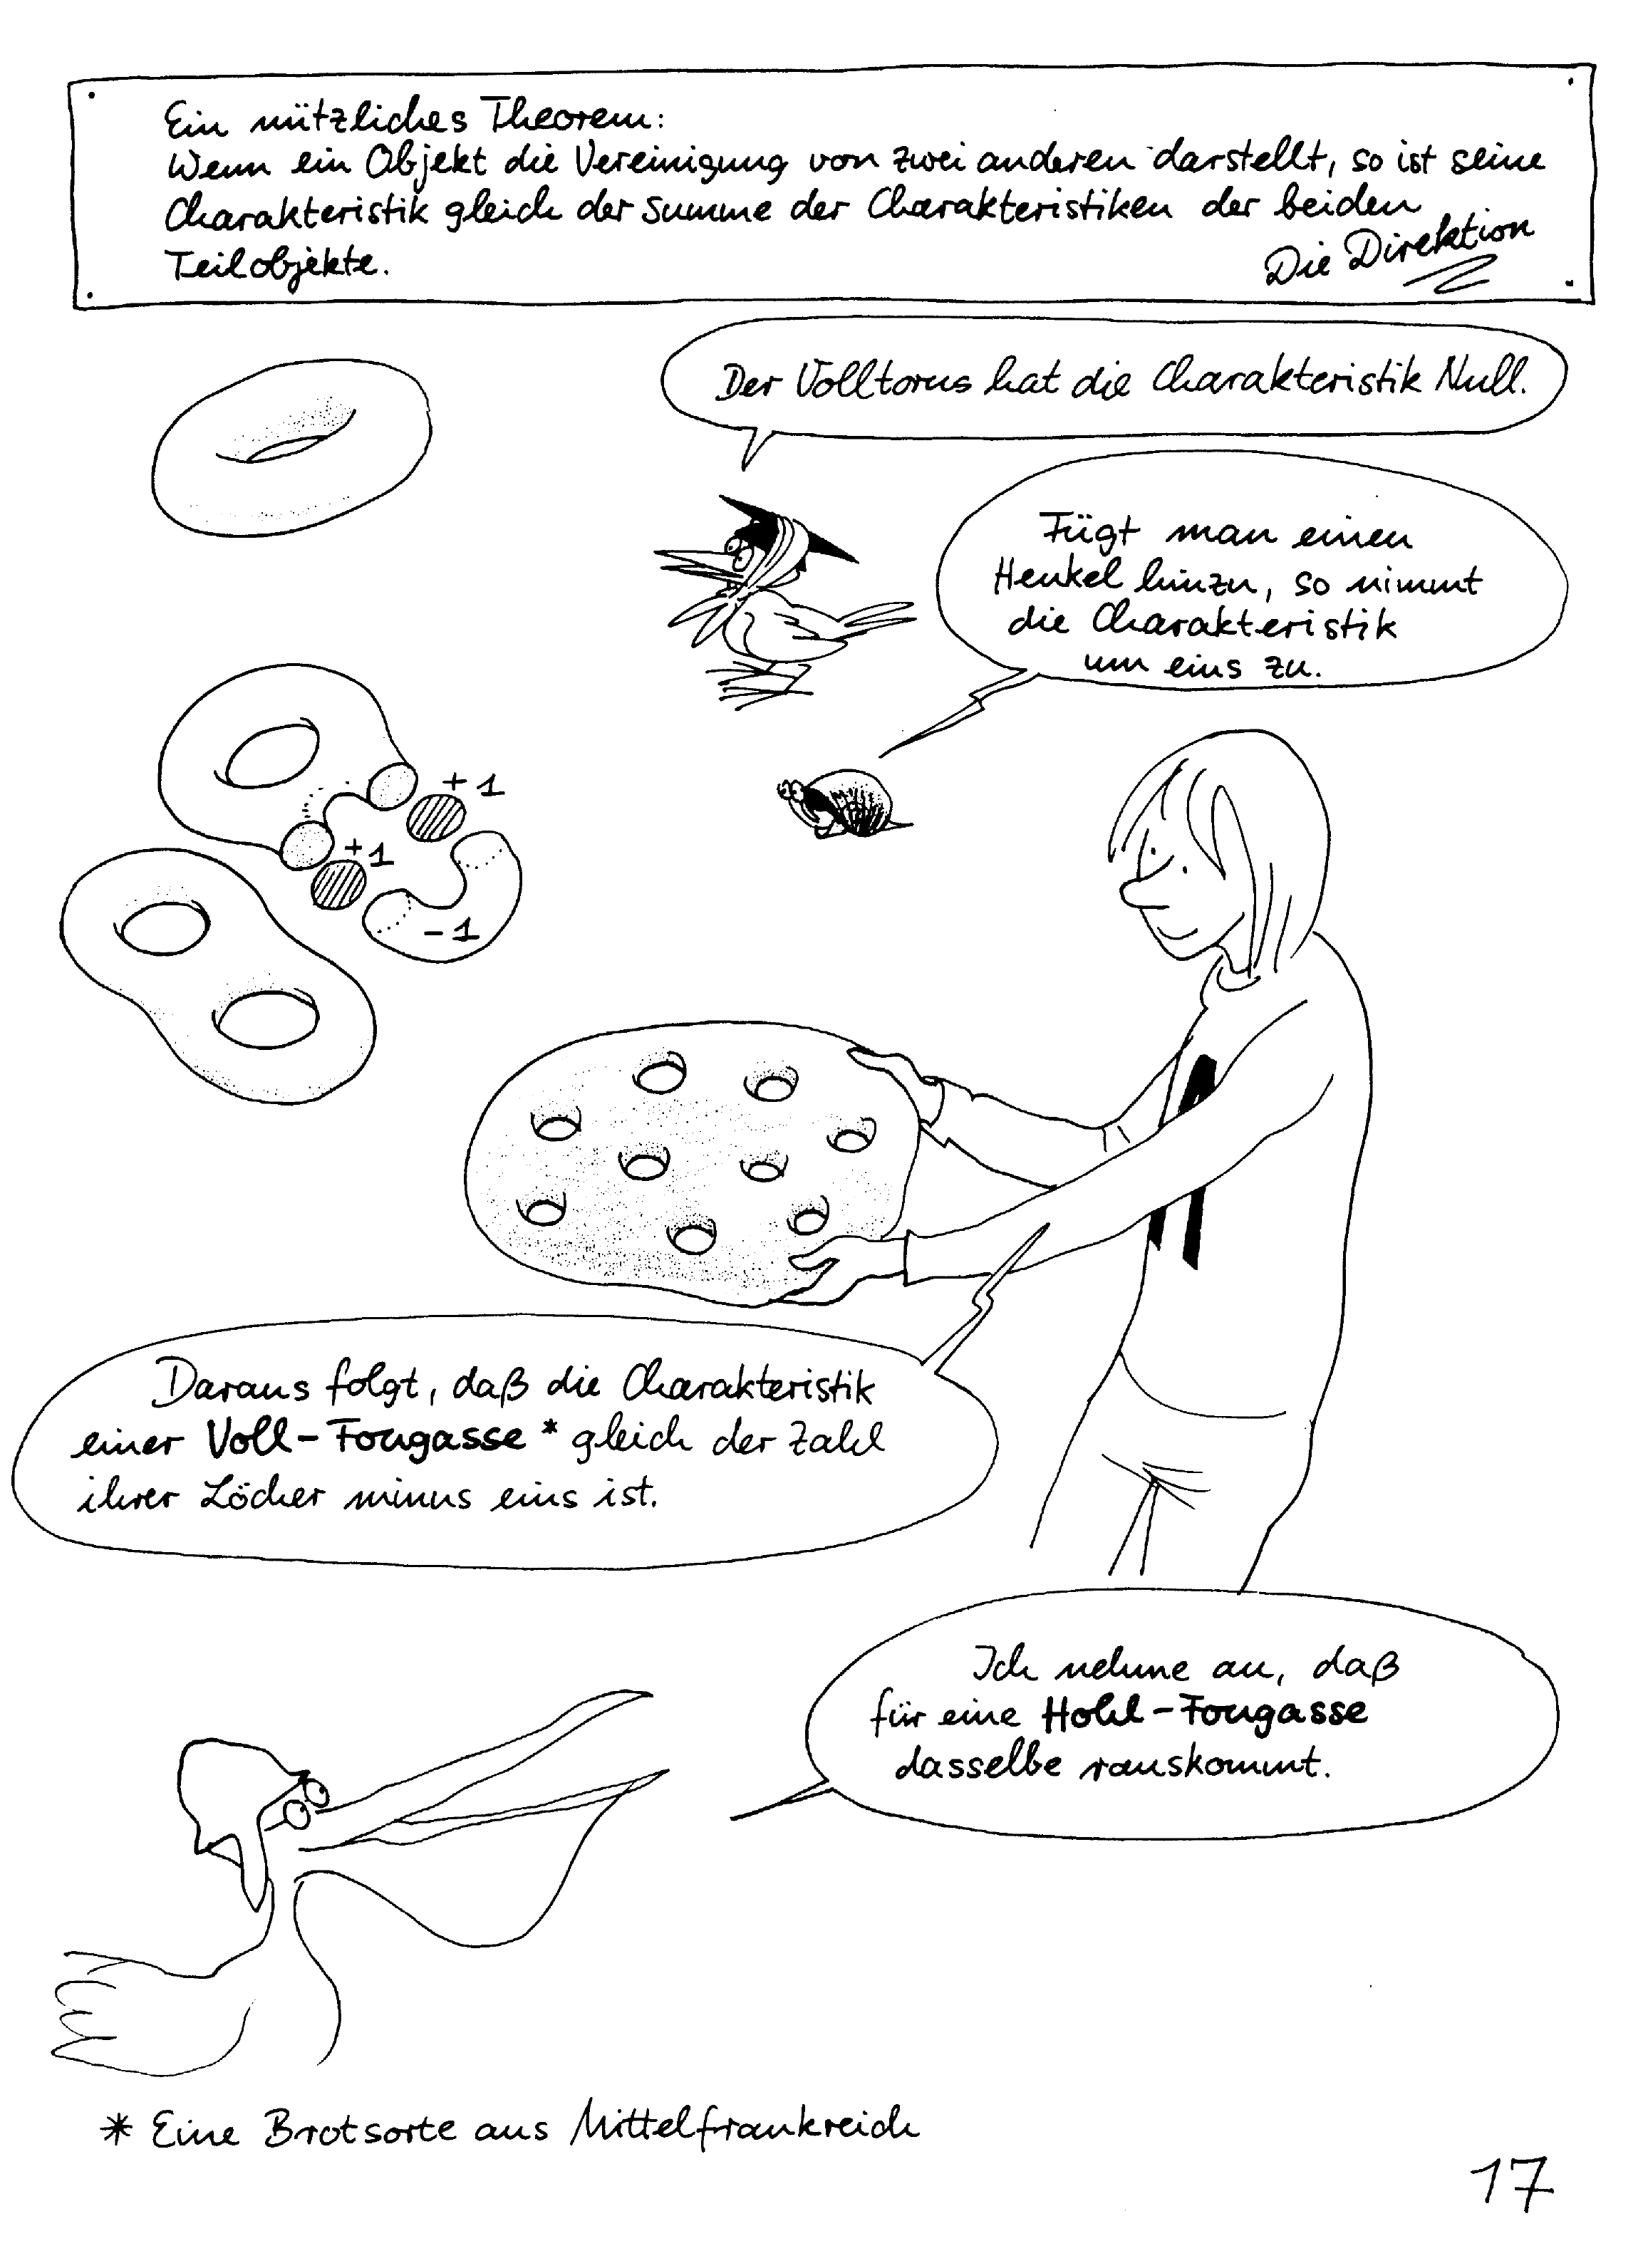 Ein nützliches Theorem:
Wenn ein Objekt die Vereinigung von zwei anderen darstellt, so ist seine
Charakteristik gleich der Summe der Charakteristiken der beiden
Teilobjekte.
Die Direktion
Der Volltorus hat die Charakteristik Null.
Fügt man einen
Henkel hinzu, so nimmt
die Charakteristik
um eins zu.
+1
+1
-1
Daraus folgt, daß die Charakteristik
einer Voll-Fougasse * gleich der Zahl
ihrer Löcher minus eins ist.
Ich nehme an, daß
für eine Hohl-Fougasse
dasselbe rauskommt.
* Eine Brotsorte aus Mittelfrankreich
17